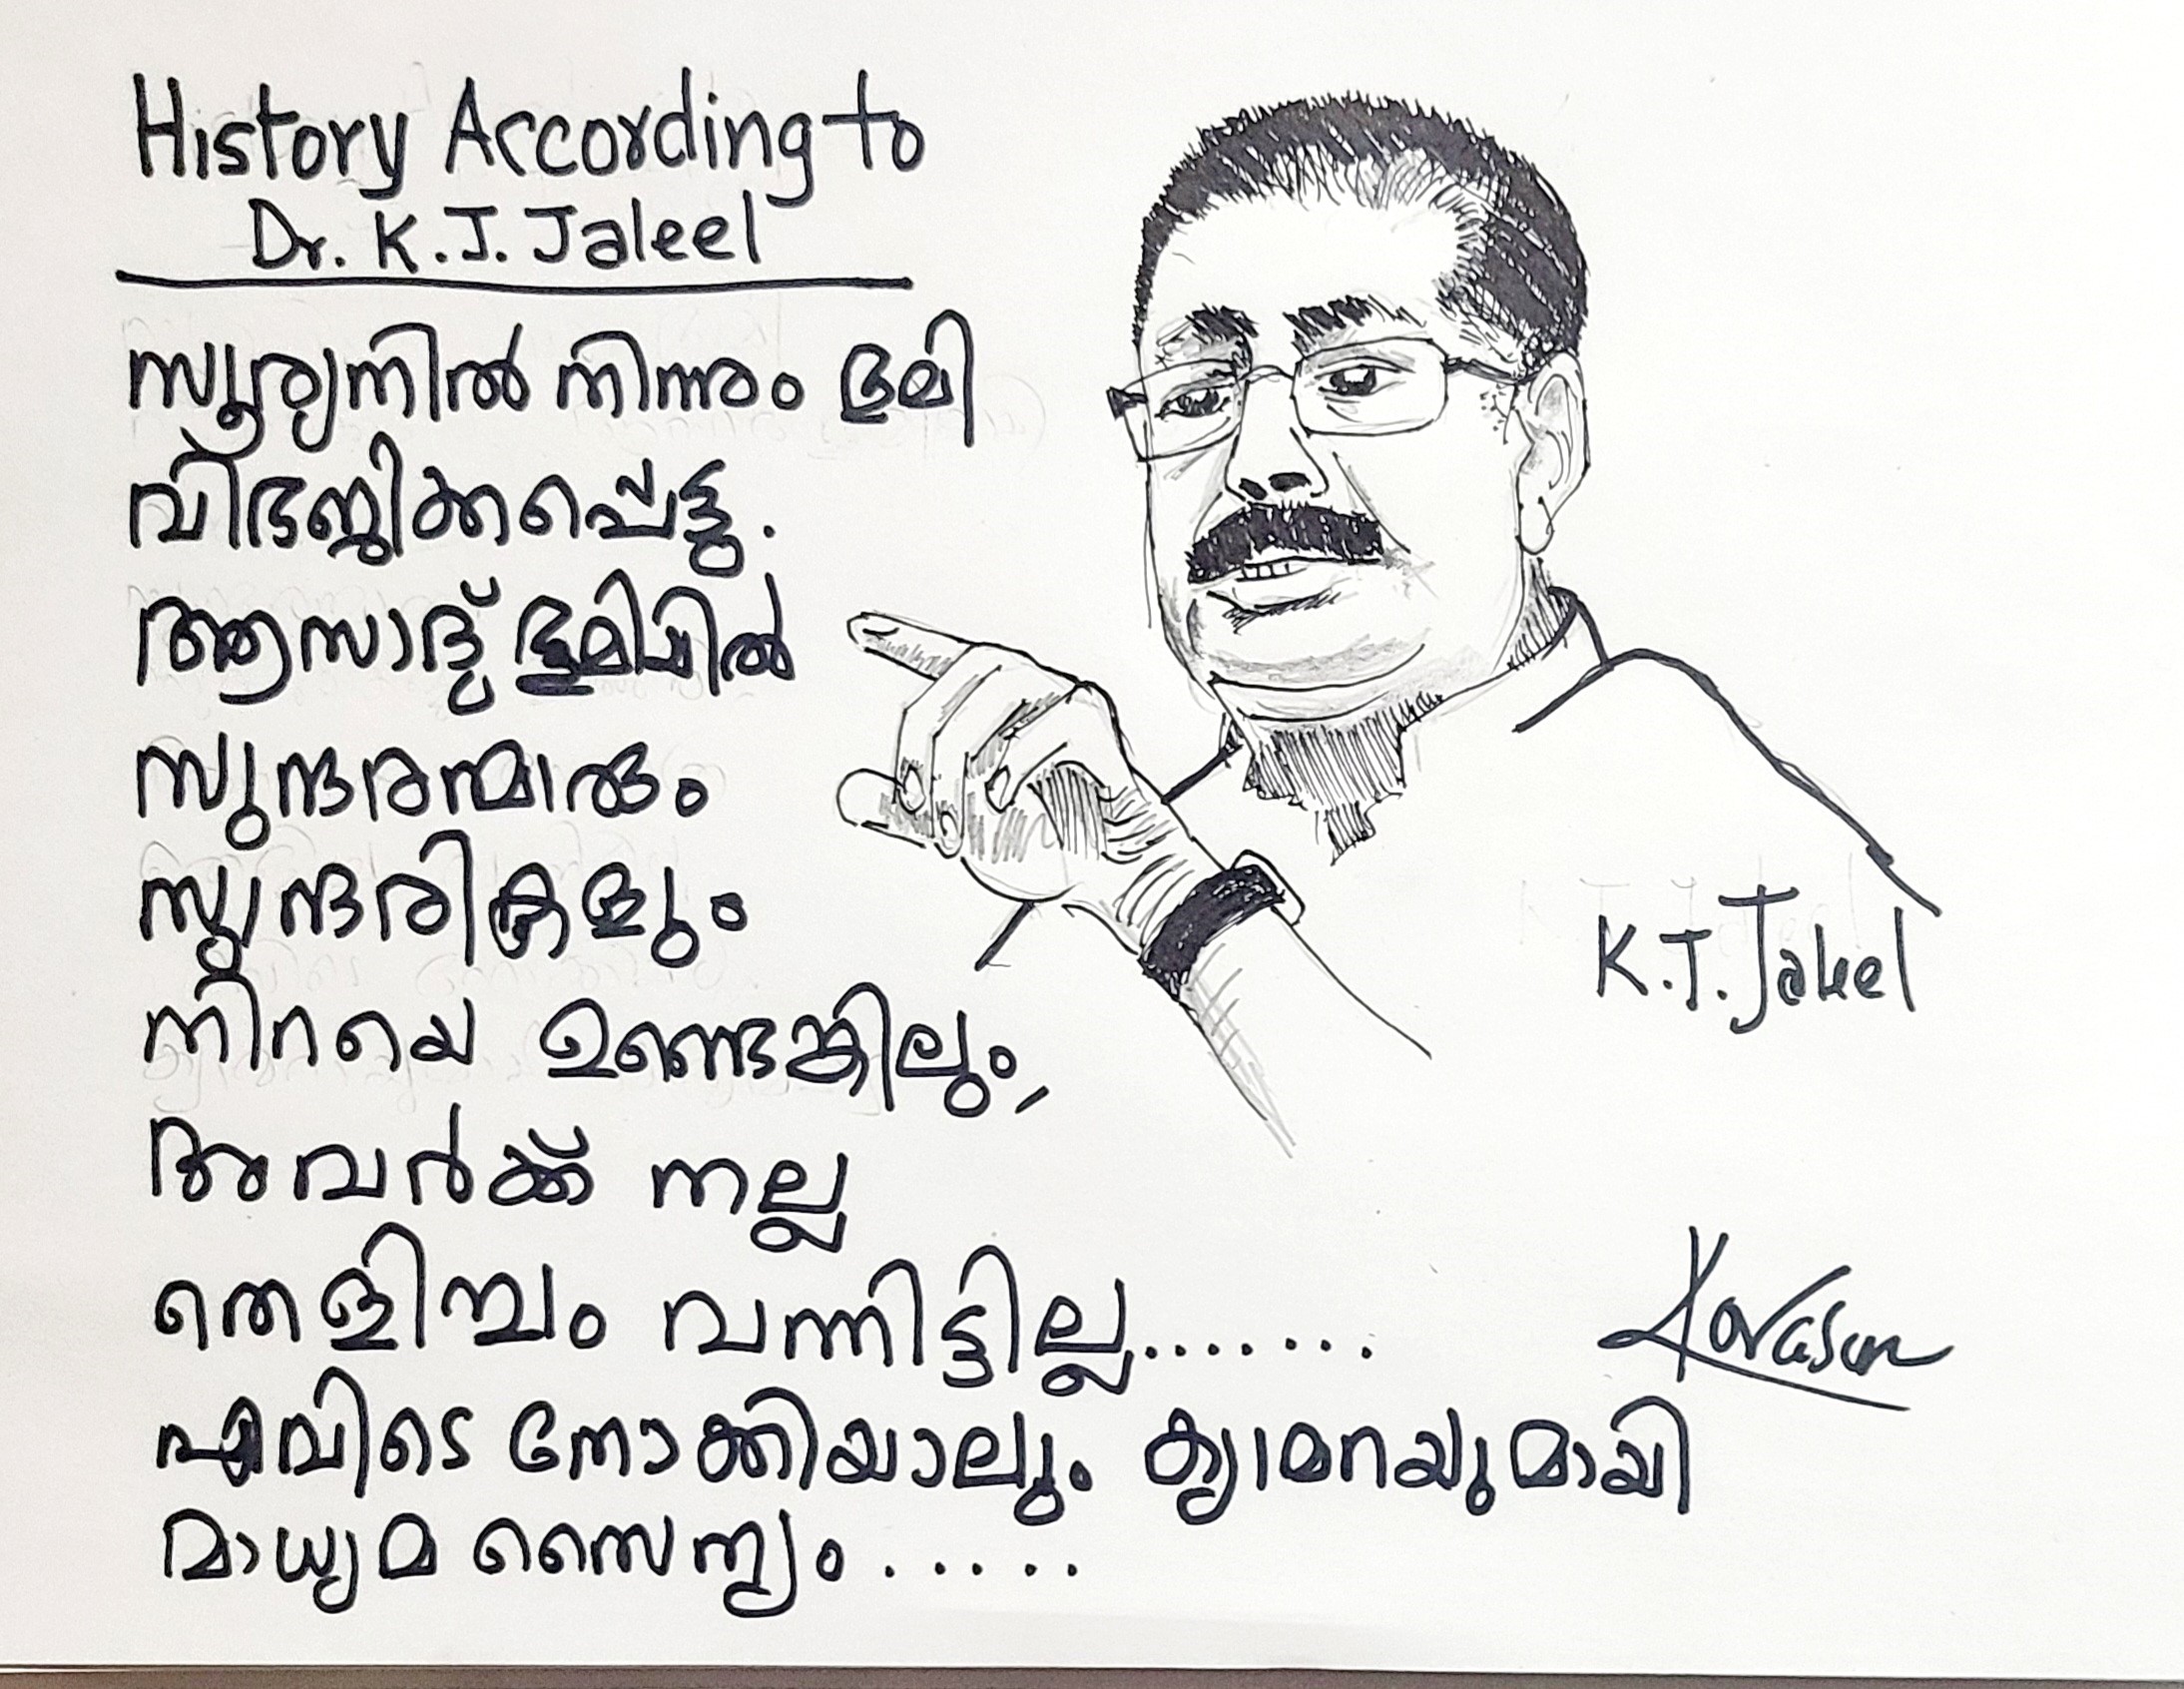 History According to
Dr. K.J. Jaleel
സൂര്യനിൽ നിന്നും ഭൂമി
വിഭജിക്കപ്പെട്ടു.
ആസാദ് ഭൂമിയിൽ
സുന്ദരന്മാരും
സുന്ദരികളും
നിറയെ ഉണ്ടെങ്കിലും,
അവർക്ക് നല്ല
തെളിമ്പം വന്നിട്ടില്ല.......
എവിടെ നോക്കിയാലും ക്യാമറയുമായി
മാധ്യമ സൈന്യം.....
K.T. Jaleel
Kovasan